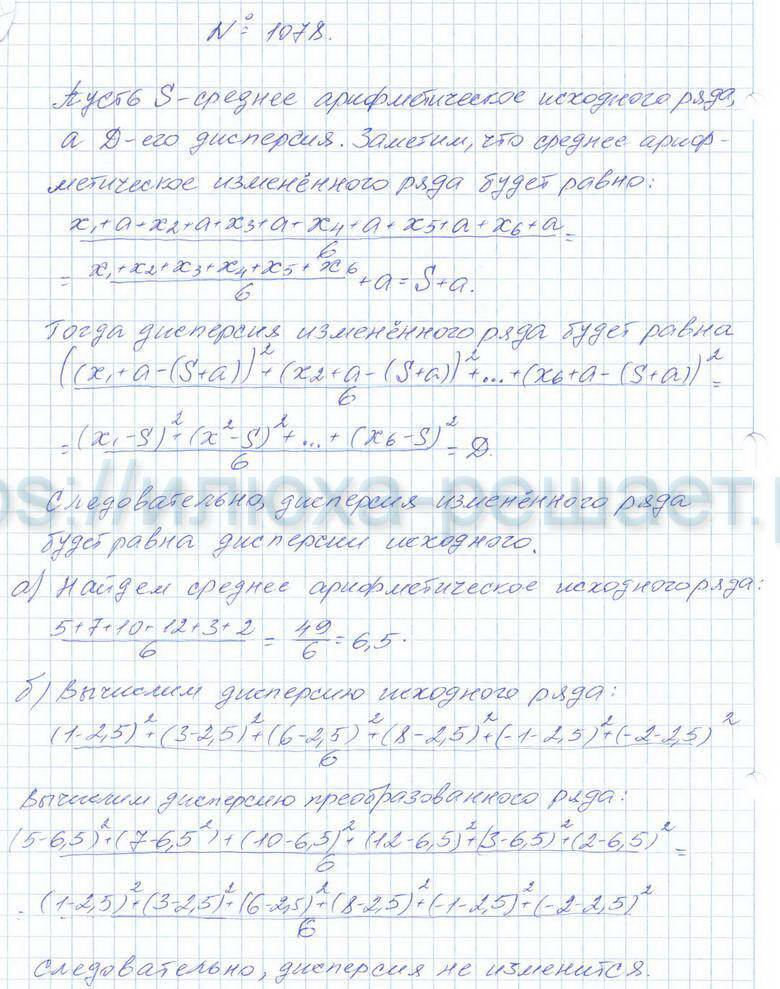 № 1078.
Пусть S-среднее арифметическое исходного ряда,
а D-его дисперсия. Заметим, что среднее ариф-
метическое изменённого ряда будет равно:
x₁+a+x₂+a+x₃+a+x₄+a+x₅+a+x₆+a =
6
= x₁+x₂+x₃+x₄+x₅+x₆ +a=S+a.
6
Тогда дисперсия изменённого ряда будет равна
((x₁+a-(S+a))²+(x₂+a-(S+a))²+...+(x₆+a-(S+a))² =
6
= (x₁-S)²+(x²-S)²+...+(x₆-S)² = D.
6
ps://илюха-решает.
Следовательно, дисперсия изменённого ряда
будет равна дисперсии исходного.
а) Найдем среднее арифметическое исходного ряда:
5+7+10+12+3+2 = 49 = 6,5.
6 6
б) Вычислим дисперсию исходного ряда:
(1-2,5)²+(3-2,5)²+(6-2,5)²+(8-2,5)²+(-1-2,5)²+(-2-2,5)²
6
Вычислим дисперсию преобразованного ряда:
(5-6,5)²+(7-6,5²)+(10-6,5)²+(12-6,5)²+(3-6,5)²+(2-6,5)² =
6
= (1-2,5)²+(3-2,5)²+(6-2,5)²+(8-2,5)²+(-1-2,5)²+(-2-2,5)²
6
Следовательно, дисперсия не изменится.